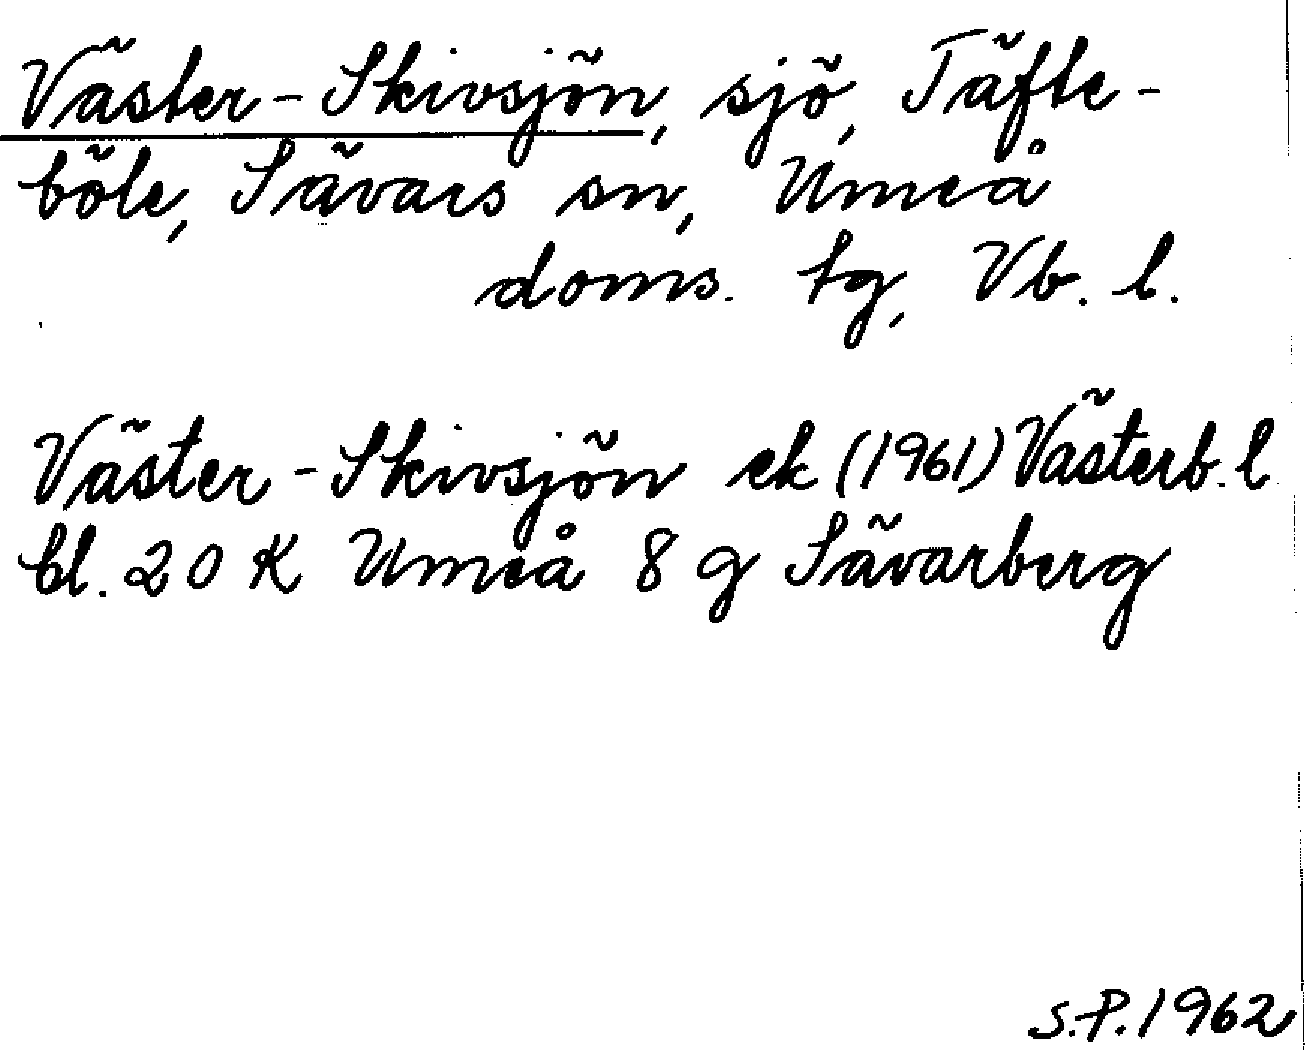 Väster-Skivsjön, sjö, Täfte-
böle, Sävars sn, Umeå
doms. tg, Vb. l.
Väster-Skivsjön ek (1961) Västerb. l
bl. 20 K Umeå 8 g Sävarberg
S.P. 1962